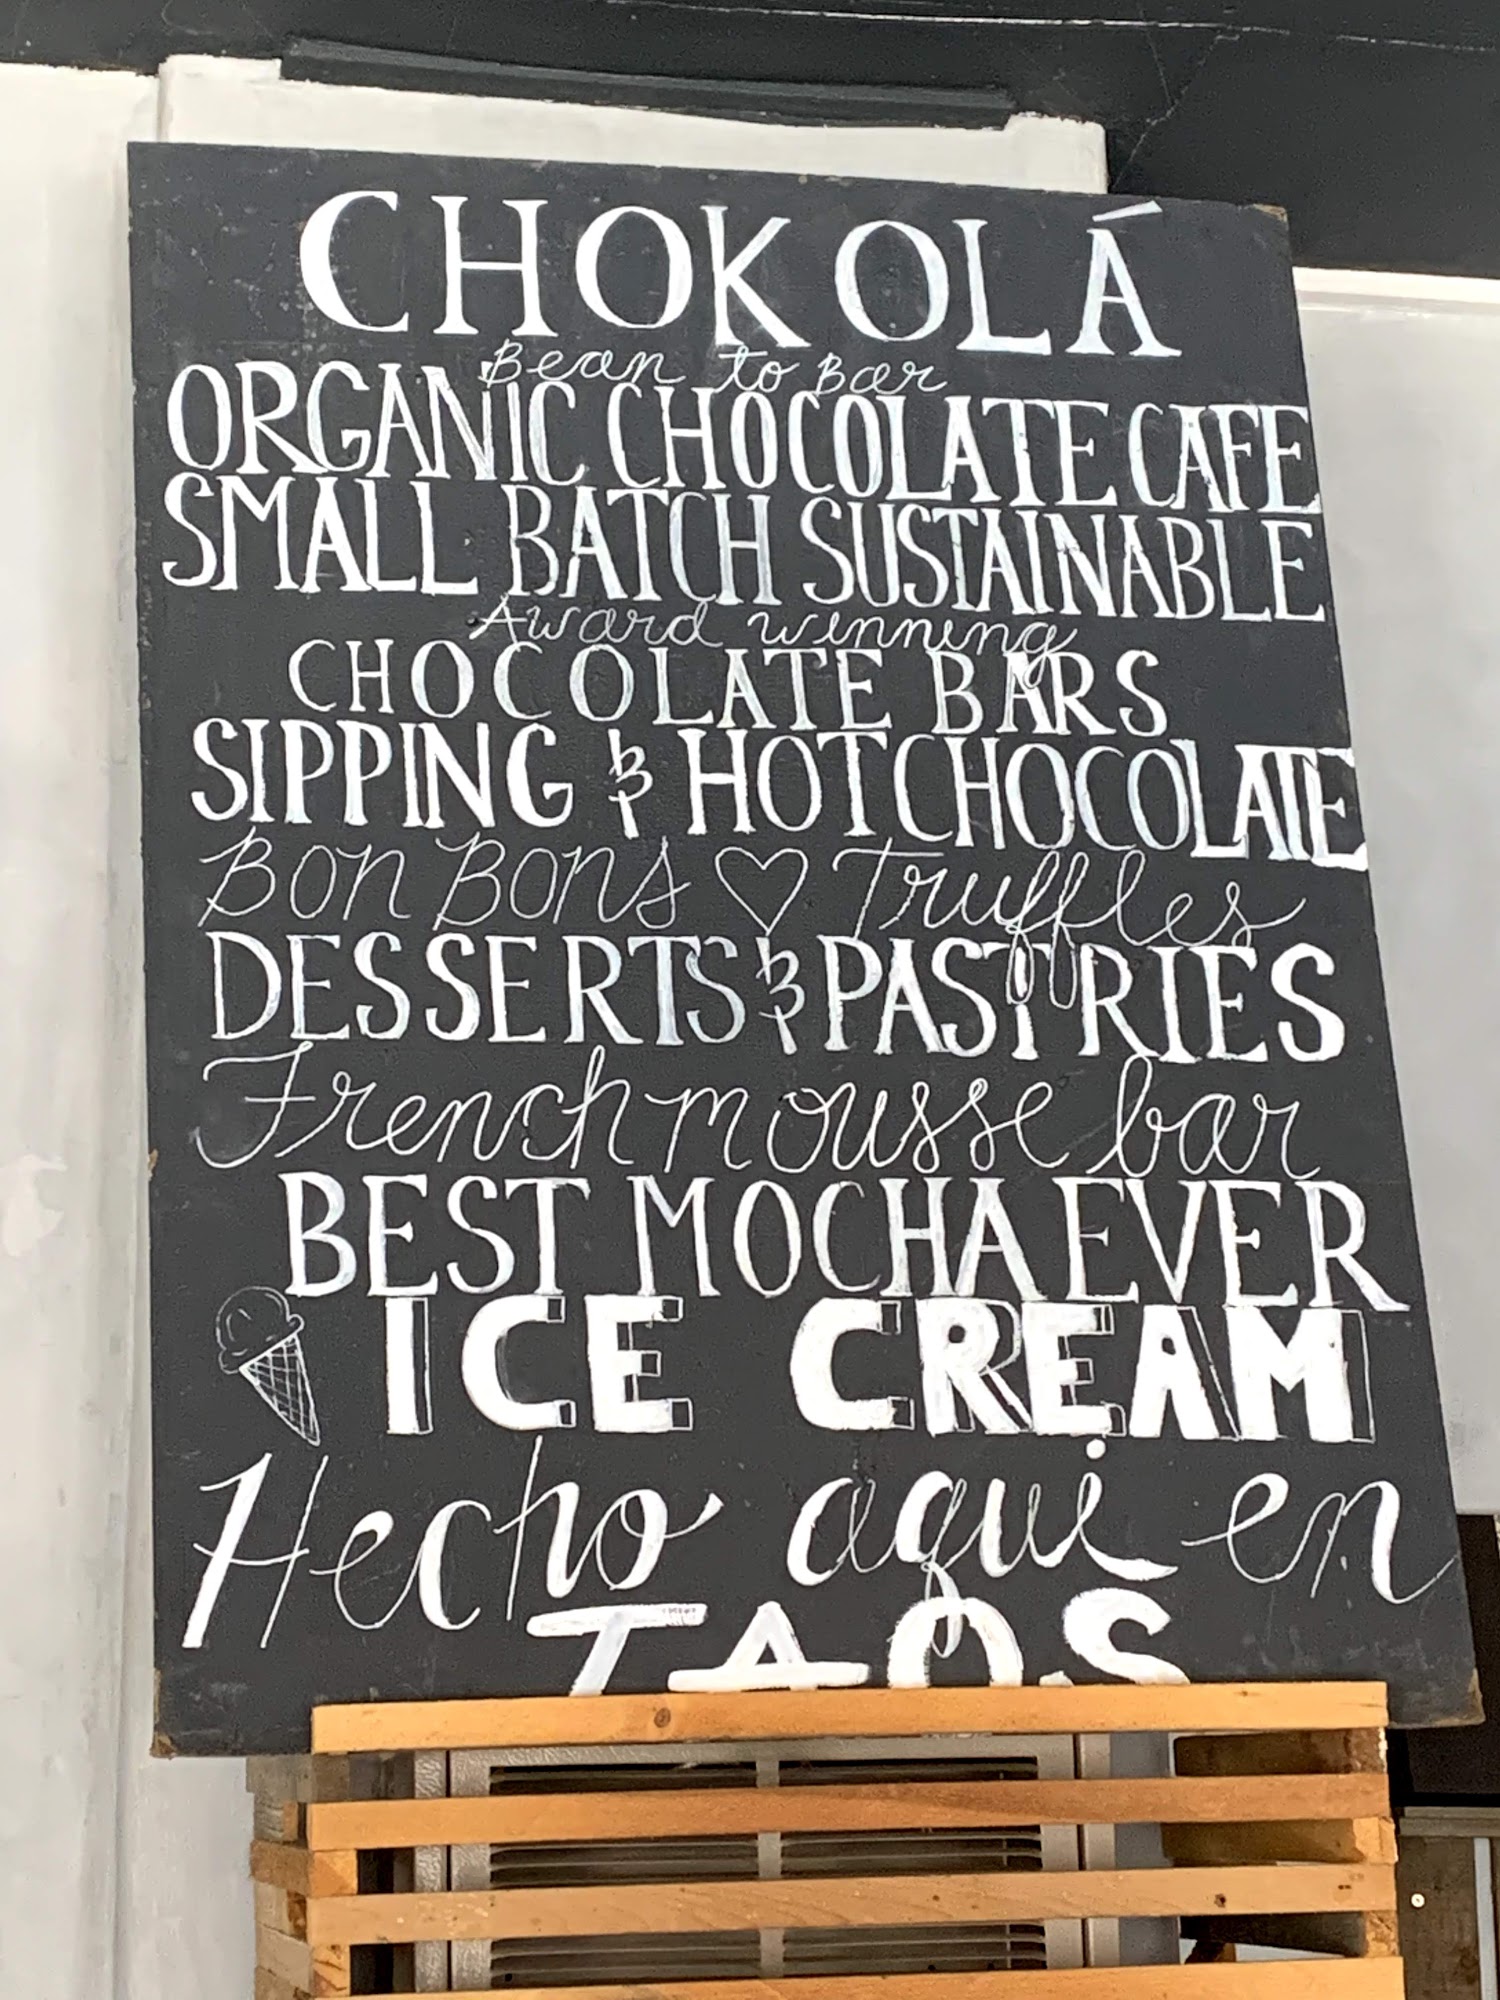 CHOKOLÁ
Bean to Bar
ORGANIC CHOCOLATE CAFE
SMALL BATCH SUSTAINABLE
Award winning
CHOCOLATE BARS
SIPPING & HOT CHOCOLATE
Bon Bons ♡ Truffles
DESSERTS & PASTRIES
French mousse bar
BEST MOCHA EVER
ICE CREAM
Hecho aqui en
TAOS